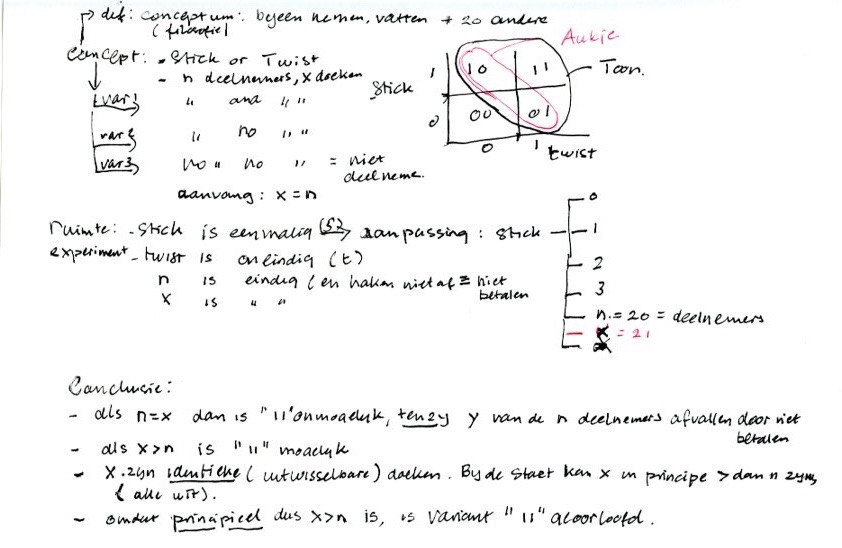 def: conceptum: byeen nemen, vatten + 20 andere
(filosofie)
Aukje
Concept: - Stick or Twist
- n deelnemers, x doeken
var1 " and " "
var2 " no " "
var3 no " no " = niet deelneme.
aanvang: x = n
Stick 1 10 11 Toon.
0 00 01
0 1 twist
ruimte: - Stick is eenmalig (s?) aanpassing: Stick
experiment - twist is oneindig (t)
n is eindig (en haken niet af = niet betalen
x is " "
0
1
2
3
n = 20 = deelnemers
x = 21
Conclusie:
- als n=x dan is "11" onmogelyk, tenzy y van de n deelnemers afvallen door niet betalen
- als x>n is "11" mogelyk
- x zyn identieke (uitwisselbare) doeken. By de Start kan x in principe > dan n zyn,
(alle wit).
- omdat principieel dus x>n is, is variant "11" geoorloofd.